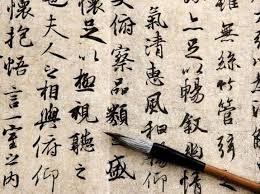 無絲竹管弦
足以暢叙幽情
氣清惠風和暢仰
大俯察品類之盛
足以極視聽之
也夫人之相與俯仰
懷抱悟言一室之內